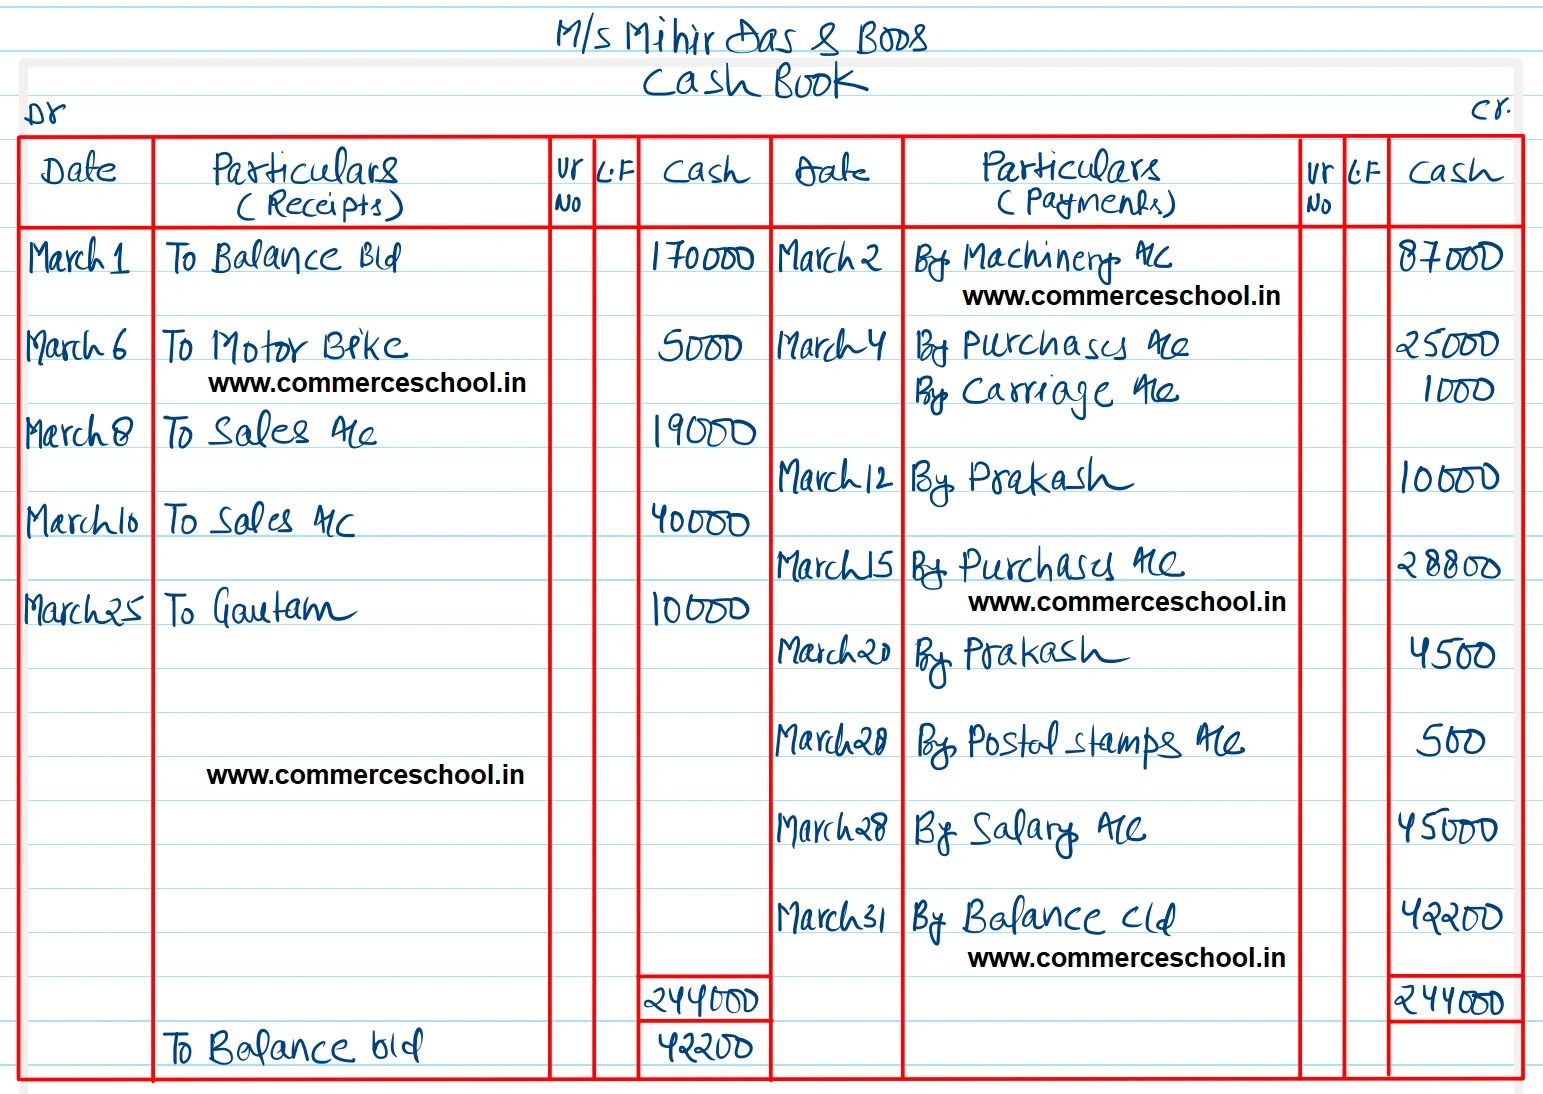 M/s Mihir Das & Boos
Cash Book
Dr Cr.
Date Particulars (Receipts) Vr No L.F Cash Date Particulars (Payments) Vr No L.F Cash
March 1 To Balance Bld 170000 March 2 By Machinery A/c 87000
www.commerceschool.in
March 6 To Motor Bike 5000 March 4 By Purchases A/c 25000
www.commerceschool.in By Carriage A/c 1000
March 8 To Sales A/c 19000
March 12 By Prakash 10000
March 10 To Sales A/c 40000
March 15 By Purchases A/c 28800
March 25 To Gautam 10000 www.commerceschool.in
March 20 By Prakash 4500
March 28 By Postal stamps A/c 500
www.commerceschool.in
March 28 By Salary A/c 45000
March 31 By Balance c/d 42200
www.commerceschool.in
244000 244000
To Balance b/d 42200